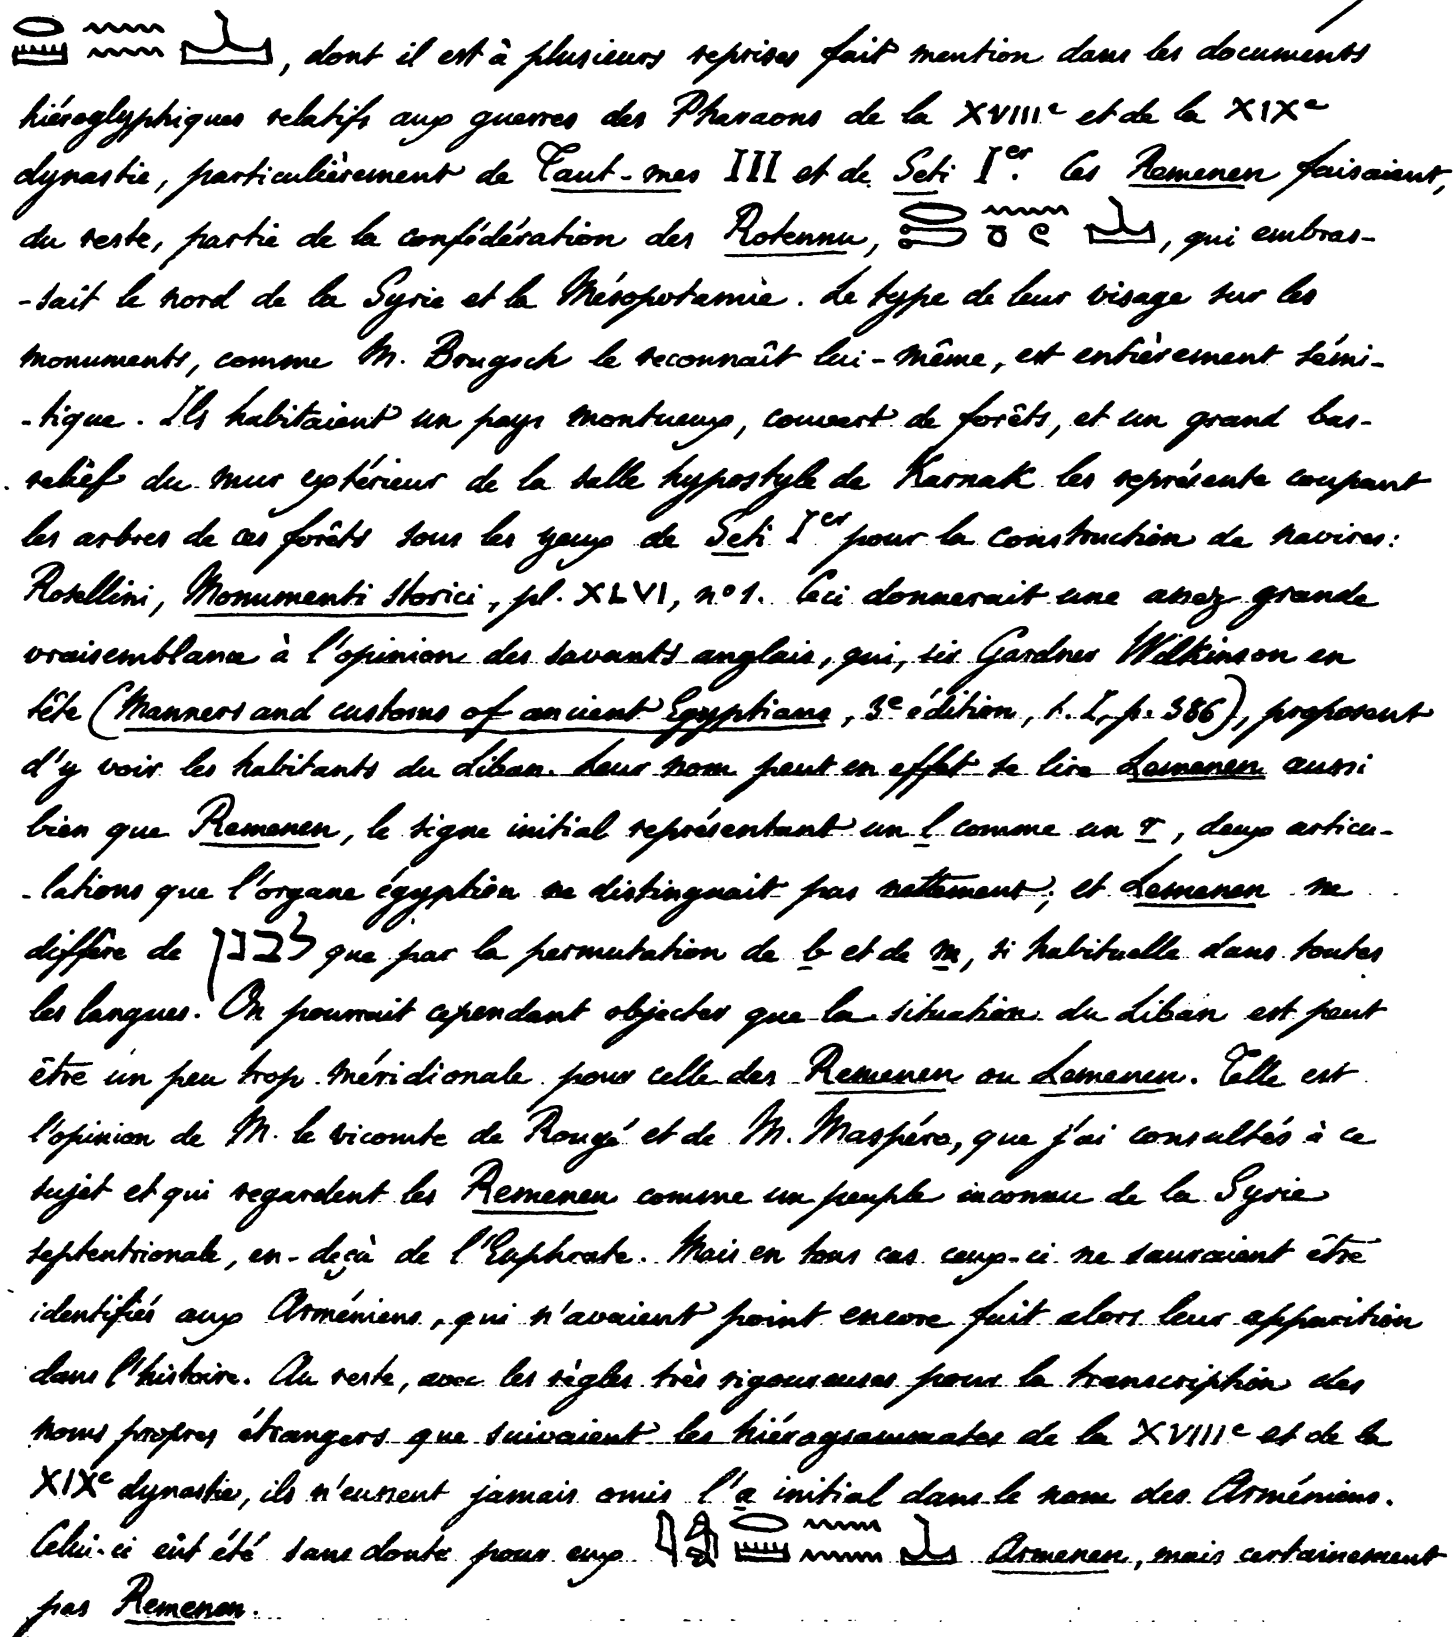 𓂋𓏠𓈖𓈖𓈉, dont il est à plusieurs reprises fait mention dans les documents
hiéroglyphiques relatifs aux guerres des Pharaons de la XVIIIe et de la XIXe
dynastie, particulièrement de Taut-mes III et de Seti Ier. Ces Remenen faisaient,
du reste, partie de la confédération des Rotennu, qui embras-
-sait le nord de la Syrie et la Mésopotamie. Le type de leur visage sur les
monuments, comme M. Brugsch le reconnaît lui-même, est entièrement sémi-
-tique. Ils habitaient un pays montueux, couvert de forêts, et un grand bas-
relief du mur extérieur de la salle hypostyle de Karnak les représente coupant
les arbres de ces forêts sous les yeux de Seti Ier pour la construction de navires:
Rosellini, Monumenti storici, pl. XLVI, no 1. Ceci donnerait une assez grande
vraisemblance à l'opinion des savants anglais, qui, sir Gardner Wilkinson en
tête (Manners and customs of ancient Egyptians, 3e édition, t. I, p. 386), proposent
d'y voir les habitants du Liban. Leur nom peut en effet se lire Lemenen aussi
bien que Remenen, le signe initial représentant un l comme un r, deux articu-
-lations que l'organe égyptien ne distinguait pas nettement; et Lemenen ne
diffère de לבנן que par la permutation de b et de m, si habituelle dans toutes
les langues. On pourrait cependant objecter que la situation du Liban est peut
être un peu trop méridionale pour celle des Remenen ou Lemenen. Telle est
l'opinion de M. le vicomte de Rougé et de M. Maspéro, que j'ai consultés à ce
sujet et qui regardent les Remenen comme un peuple inconnu de la Syrie
septentrionale, en-deçà de l'Euphrate. Mais en tous cas ceux-ci ne sauraient être
identifiés aux Arméniens, qui n'avaient point encore fait alors leur apparition
dans l'histoire. Au reste, avec les règles très rigoureuses pour la transcription des
noms propres étrangers que suivaient les hiérogrammates de la XVIIIe et de la
XIXe dynastie, ils n'eussent jamais omis l'a initial dans le nom des Arméniens.
Celui-ci eût été sans doute pour eux 𓇋𓄿𓂋𓏠𓈖𓈖𓈉 Armenen, mais certainement
pas Remenen.